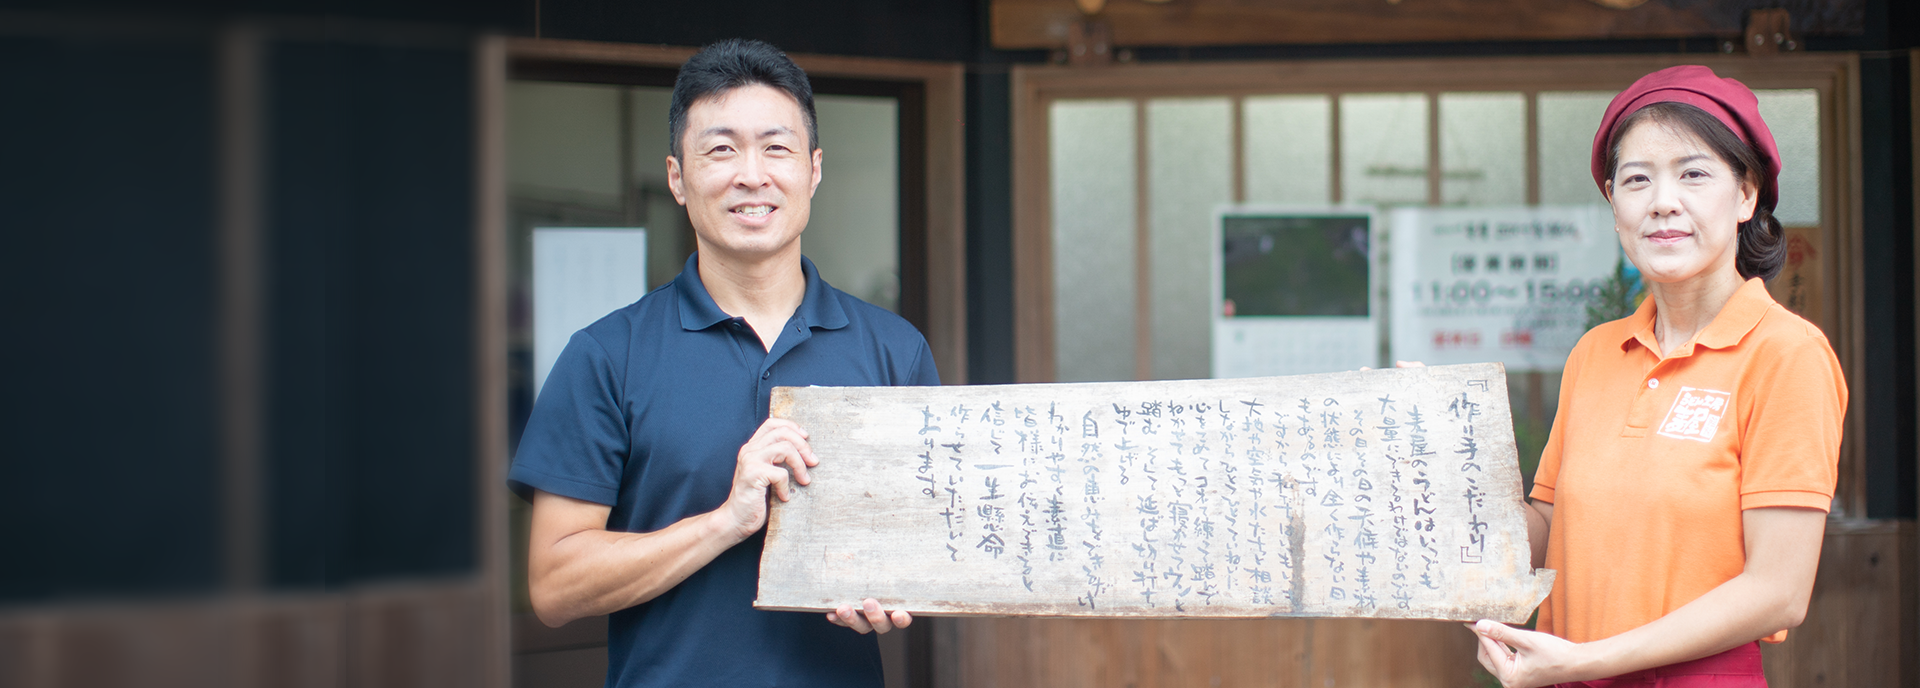 『作り手のこだわり』
麦屋のうどんはいつでも
大量にできるわけではないのです
その日その日の天候や素材
の状態により全く作らない日
もあるのです
ですから私共はいつもいつも
大地や空気や水たちと相談
しながらひとつひとつていねいに
心をこめてコネて練って踏んで
ねかせてもっと寝かせてウンと
踏む そして延ばし切り打ち
ゆで上げる
自然の恵みをできるだけ
わかりやすく素直に
皆様にお伝えできると
信じて 一生懸命
作らせていただいて
おります
11:00〜15:00